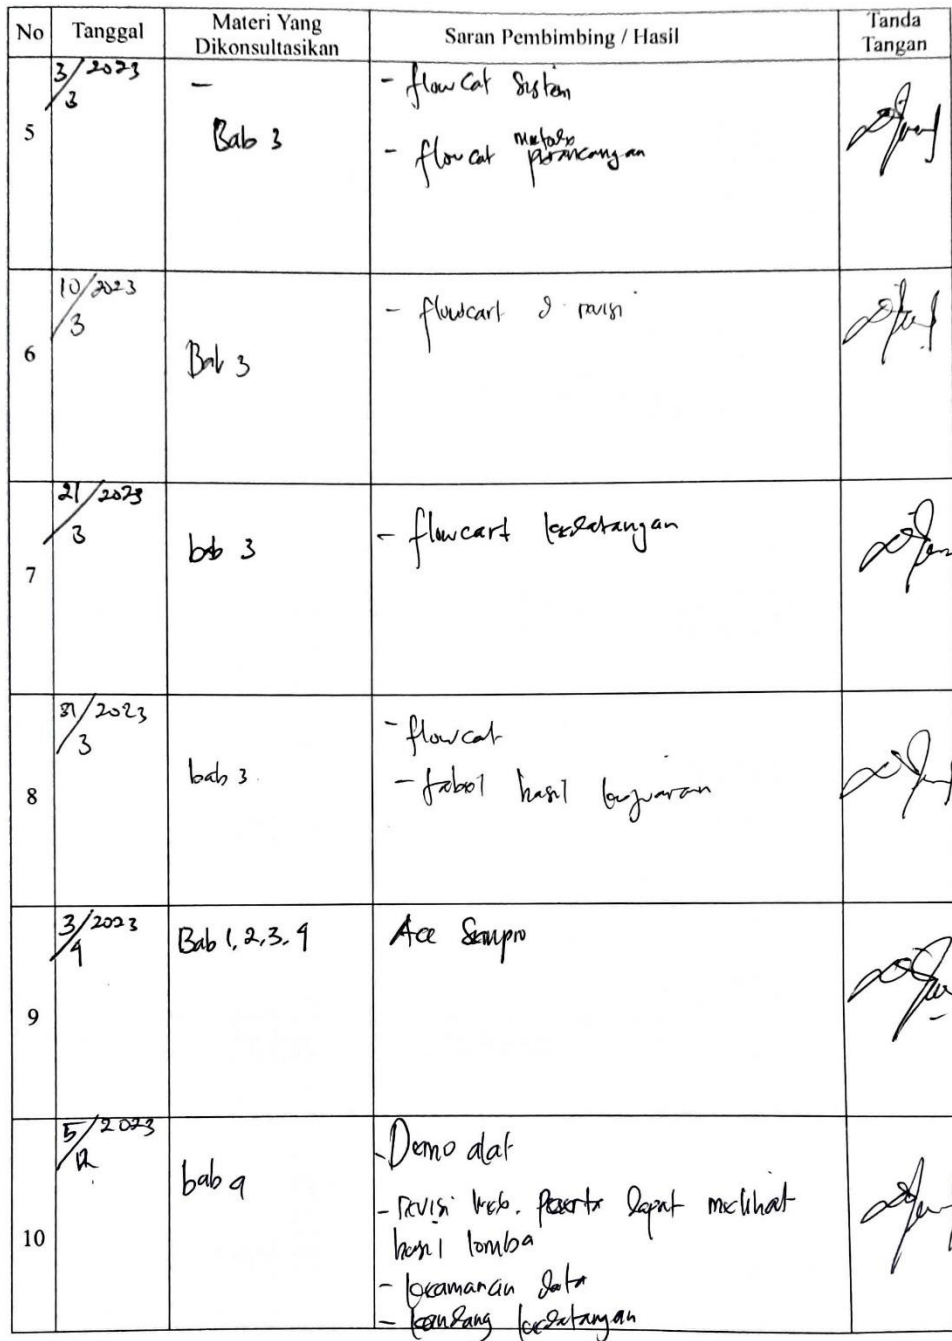 No Tanggal Materi Yang Dikonsultasikan Saran Pembimbing / Hasil Tanda Tangan
5 3/3 2023 - Bab 3
- flowcat Sistem
- flowcat metode perancangan
6 10/3 2023 Bab 3
- flowcart d revisi
7 21/3 2023 bab 3
- flowcart kedatangan
8 31/3 2023 bab 3
- flowcat
- tabel hasil
9 3/4 2023 Bab 1, 2, 3. 4 Acc Sempro
10 5/12 2023 bab 4
- Demo alat
- revisi web. peserta dapat melihat
hasil lomba
- keamanan data
- kandang kedatangan